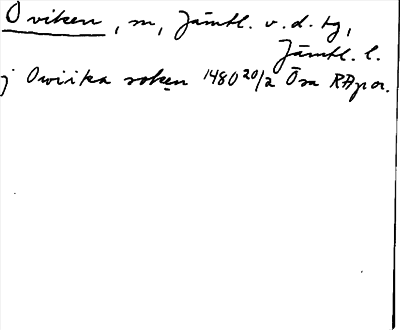 Oviken, sn, Jämtl. v. d. tg,
Jämtl. l.
j Owiika soken 1480 20/2 Ösa RAp or.